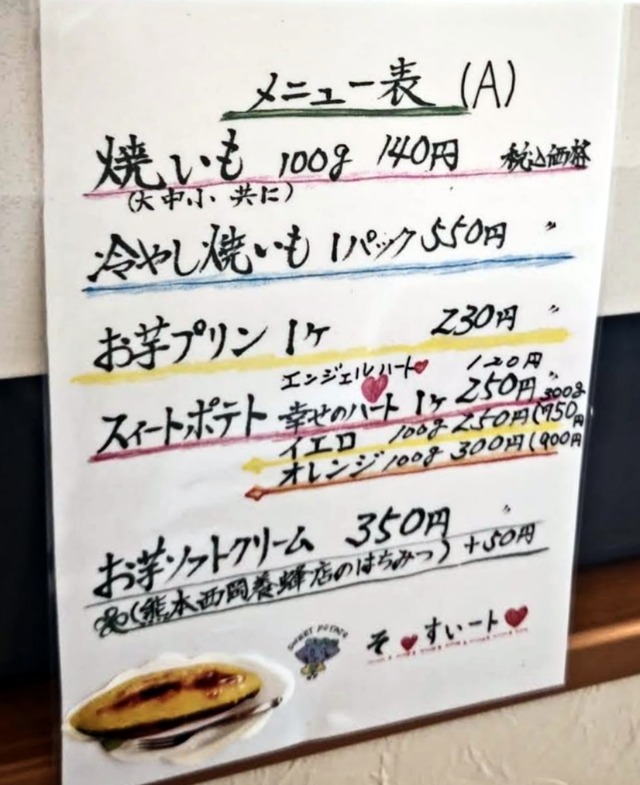 メニュー表 (A)
焼いも 100g 140円 税込価格
(大中小 共に)
冷やし焼いも 1パック 550円 〃
お芋プリン 1ケ 230円 〃
エンジェルハート 120円
スイートポテト 幸せのハート 1ケ 250円 〃
イエロー 100g 250円 (300g 750円
オレンジ 100g 300円 (900円
お芋ソフトクリーム 350円 〃
(熊本西岡養蜂店のはちみつ) +50円
SWEET POTATO
そ すいート